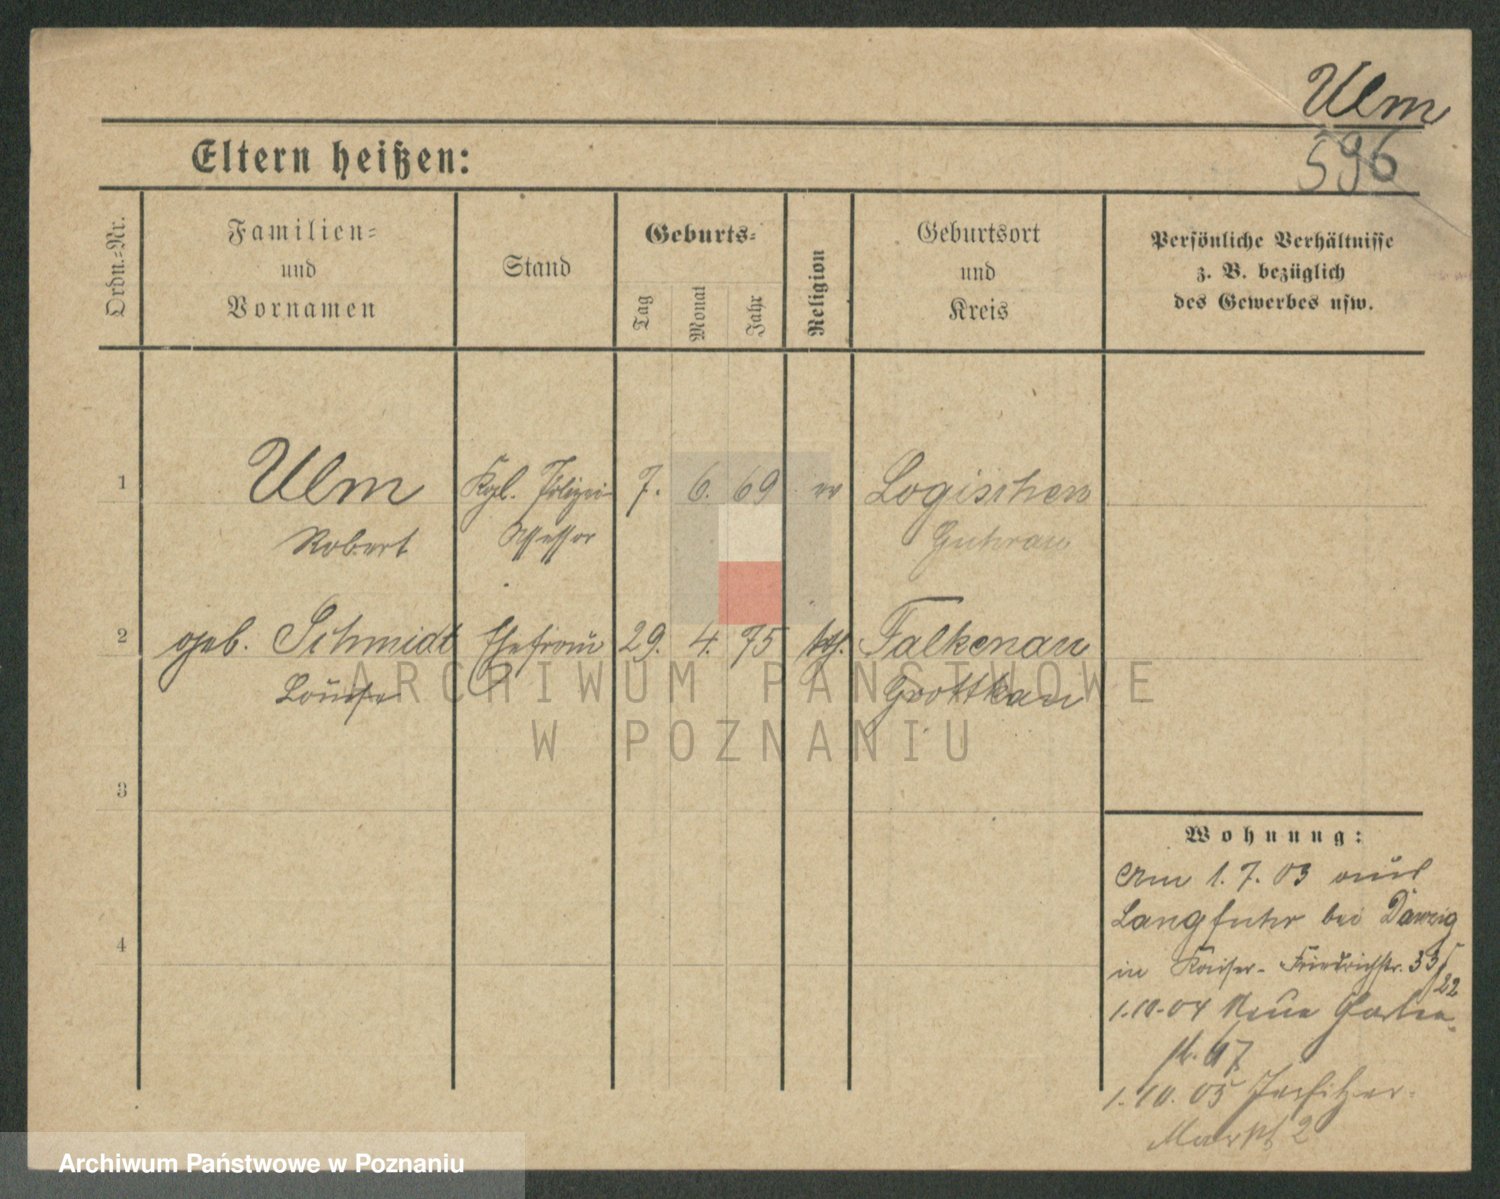 Ulm
596
Eltern heißen:
Ordn.-Nr.
Familien-
und
Vornamen
Stand
Geburts-
Tag
Monat
Jahr
Religion
Geburtsort
und
Kreis
Persönliche Verhältnisse
z. B. bezüglich
des Gewerbes usw.
1
Ulm
Kgl. Polizei-
7. 6. 69 ev
Logischen
Robert
Assessor
Guhrau
2
geb. Schmidt
Ehefrau
29. 4. 75 kth.
Falkenau
Louise
Grottkau
ARCHIWUM PAŃSTWOWE
W POZNANIU
3
4
Wohnung:
Am 1.7.03 aus
Langfuhr bei Danzig
in Kaiser-Friedrichstr. 33/
22
1.10.04 Neue Garten-
str. 67
1.10.05 Jersitzer-
Markt 2
Archiwum Państwowe w Poznaniu